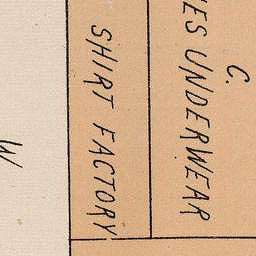 C.
ES UNDERWEAR
SHIRT FACTORY
W